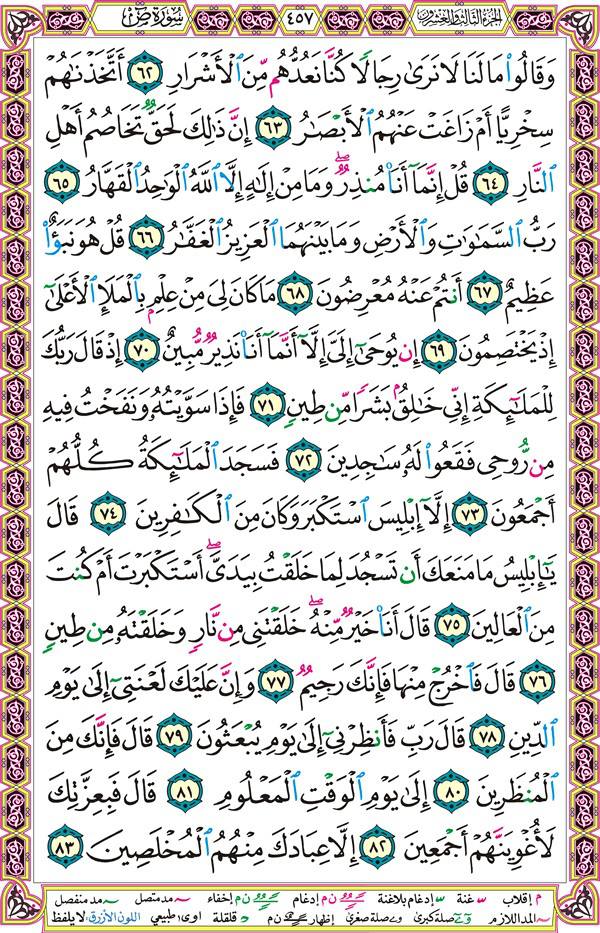 الجزء الثالث والعشرون ٤٥٧ سورة ص
وَقَالُوا۟ مَا لَنَا لَا نَرَىٰ رِجَالًا كُنَّا نَعُدُّهُم مِّنَ ٱلْأَشْرَارِ ٦٢ أَتَّخَذْنَـٰهُمْ
سِخْرِيًّا أَمْ زَاغَتْ عَنْهُمُ ٱلْأَبْصَـٰرُ ٦٣ إِنَّ ذَٰلِكَ لَحَقٌّ تَخَاصُمُ أَهْلِ
ٱلنَّارِ ٦٤ قُلْ إِنَّمَآ أَنَا۠ مُنذِرٌ ۖ وَمَا مِنْ إِلَـٰهٍ إِلَّا ٱللَّهُ ٱلْوَٰحِدُ ٱلْقَهَّارُ ٦٥
رَبُّ ٱلسَّمَـٰوَٰتِ وَٱلْأَرْضِ وَمَا بَيْنَهُمَا ٱلْعَزِيزُ ٱلْغَفَّـٰرُ ٦٦ قُلْ هُوَ نَبَؤٌا۟
عَظِيمٌ ٦٧ أَنتُمْ عَنْهُ مُعْرِضُونَ ٦٨ مَا كَانَ لِىَ مِنْ عِلْمٍۭ بِٱلْمَلَإِ ٱلْأَعْلَىٰٓ
إِذْ يَخْتَصِمُونَ ٦٩ إِن يُوحَىٰٓ إِلَىَّ إِلَّآ أَنَّمَآ أَنَا۠ نَذِيرٌ مُّبِينٌ ٧٠ إِذْ قَالَ رَبُّكَ
لِلْمَلَـٰٓئِكَةِ إِنِّى خَـٰلِقٌۢ بَشَرًا مِّن طِينٍ ٧١ فَإِذَا سَوَّيْتُهُۥ وَنَفَخْتُ فِيهِ
مِن رُّوحِى فَقَعُوا۟ لَهُۥ سَـٰجِدِينَ ٧٢ فَسَجَدَ ٱلْمَلَـٰٓئِكَةُ كُلُّهُمْ
أَجْمَعُونَ ٧٣ إِلَّآ إِبْلِيسَ ٱسْتَكْبَرَ وَكَانَ مِنَ ٱلْكَـٰفِرِينَ ٧٤ قَالَ
يَـٰٓإِبْلِيسُ مَا مَنَعَكَ أَن تَسْجُدَ لِمَا خَلَقْتُ بِيَدَىَّ ۖ أَسْتَكْبَرْتَ أَمْ كُنتَ
مِنَ ٱلْعَالِينَ ٧٥ قَالَ أَنَا۠ خَيْرٌ مِّنْهُ ۖ خَلَقْتَنِى مِن نَّارٍ وَخَلَقْتَهُۥ مِن طِينٍ
٧٦ قَالَ فَٱخْرُجْ مِنْهَا فَإِنَّكَ رَجِيمٌ ٧٧ وَإِنَّ عَلَيْكَ لَعْنَتِىٓ إِلَىٰ يَوْمِ
ٱلدِّينِ ٧٨ قَالَ رَبِّ فَأَنظِرْنِىٓ إِلَىٰ يَوْمِ يُبْعَثُونَ ٧٩ قَالَ فَإِنَّكَ مِنَ
ٱلْمُنظَرِينَ ٨٠ إِلَىٰ يَوْمِ ٱلْوَقْتِ ٱلْمَعْلُومِ ٨١ قَالَ فَبِعِزَّتِكَ
لَأُغْوِيَنَّهُمْ أَجْمَعِينَ ٨٢ إِلَّا عِبَادَكَ مِنْهُمُ ٱلْمُخْلَصِينَ ٨٣
م إقلاب غنة إدغام بلاغنة ن م إدغام ن م إخفاء مد متصل مد منفصل
المد اللازم صلة كبرى صلة صغرى إظهار ن م قلقلة اوى طبيعي اللون الأزرق: لا يلفظ